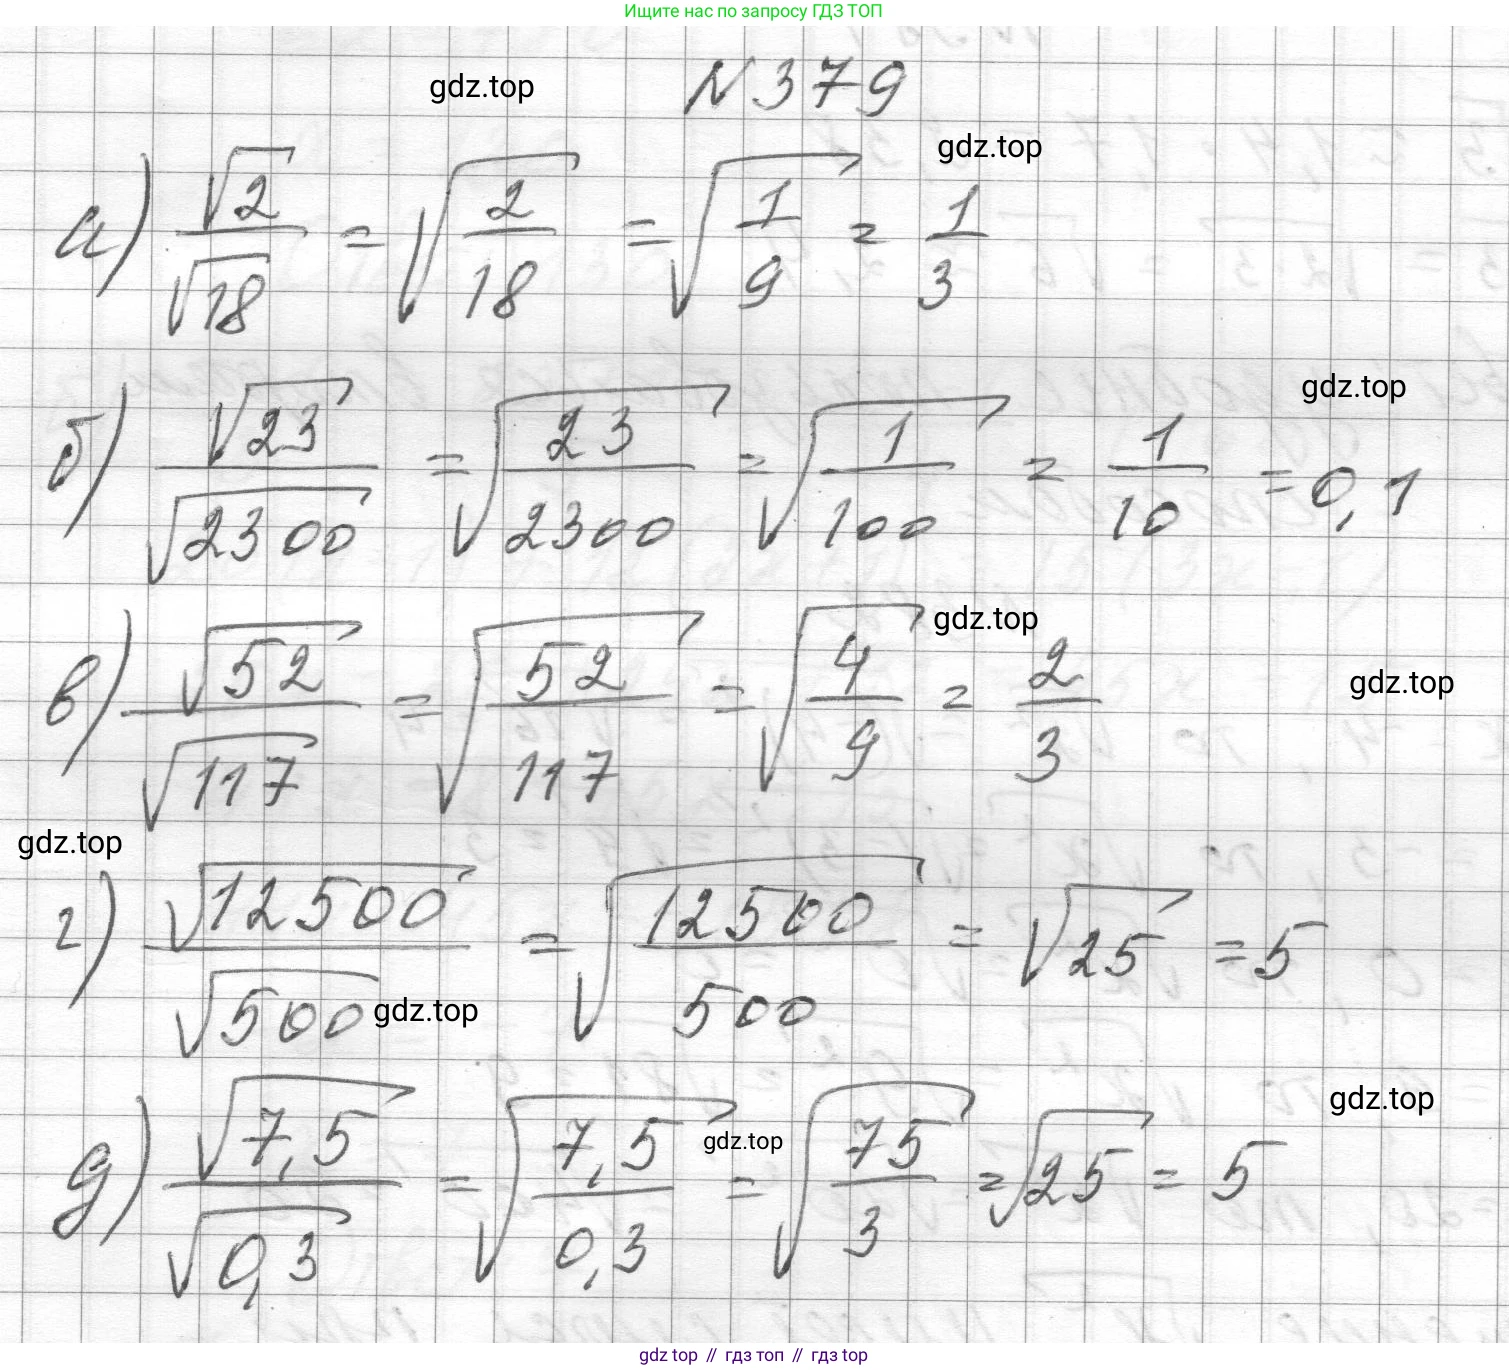 Ищите нас по запросу ГДЗ ТОП
gdz.top
N 379
gdz.top
а) √2/√18 = √(2/18) = √(1/9) = 1/3
gdz.top
б) √23/√2300 = √(23/2300) = √(1/100) = 1/10 = 0,1
gdz.top
в) √52/√117 = √(52/117) = √(4/9) = 2/3
gdz.top
gdz.top
г) √12500/√500 = √(12500/500) = √25 = 5
gdz.top
gdz.top
д) √7,5/√0,3 = √(7,5/0,3) = √(75/3) = √25 = 5
gdz.top
gdz top // гдз топ // гдз top